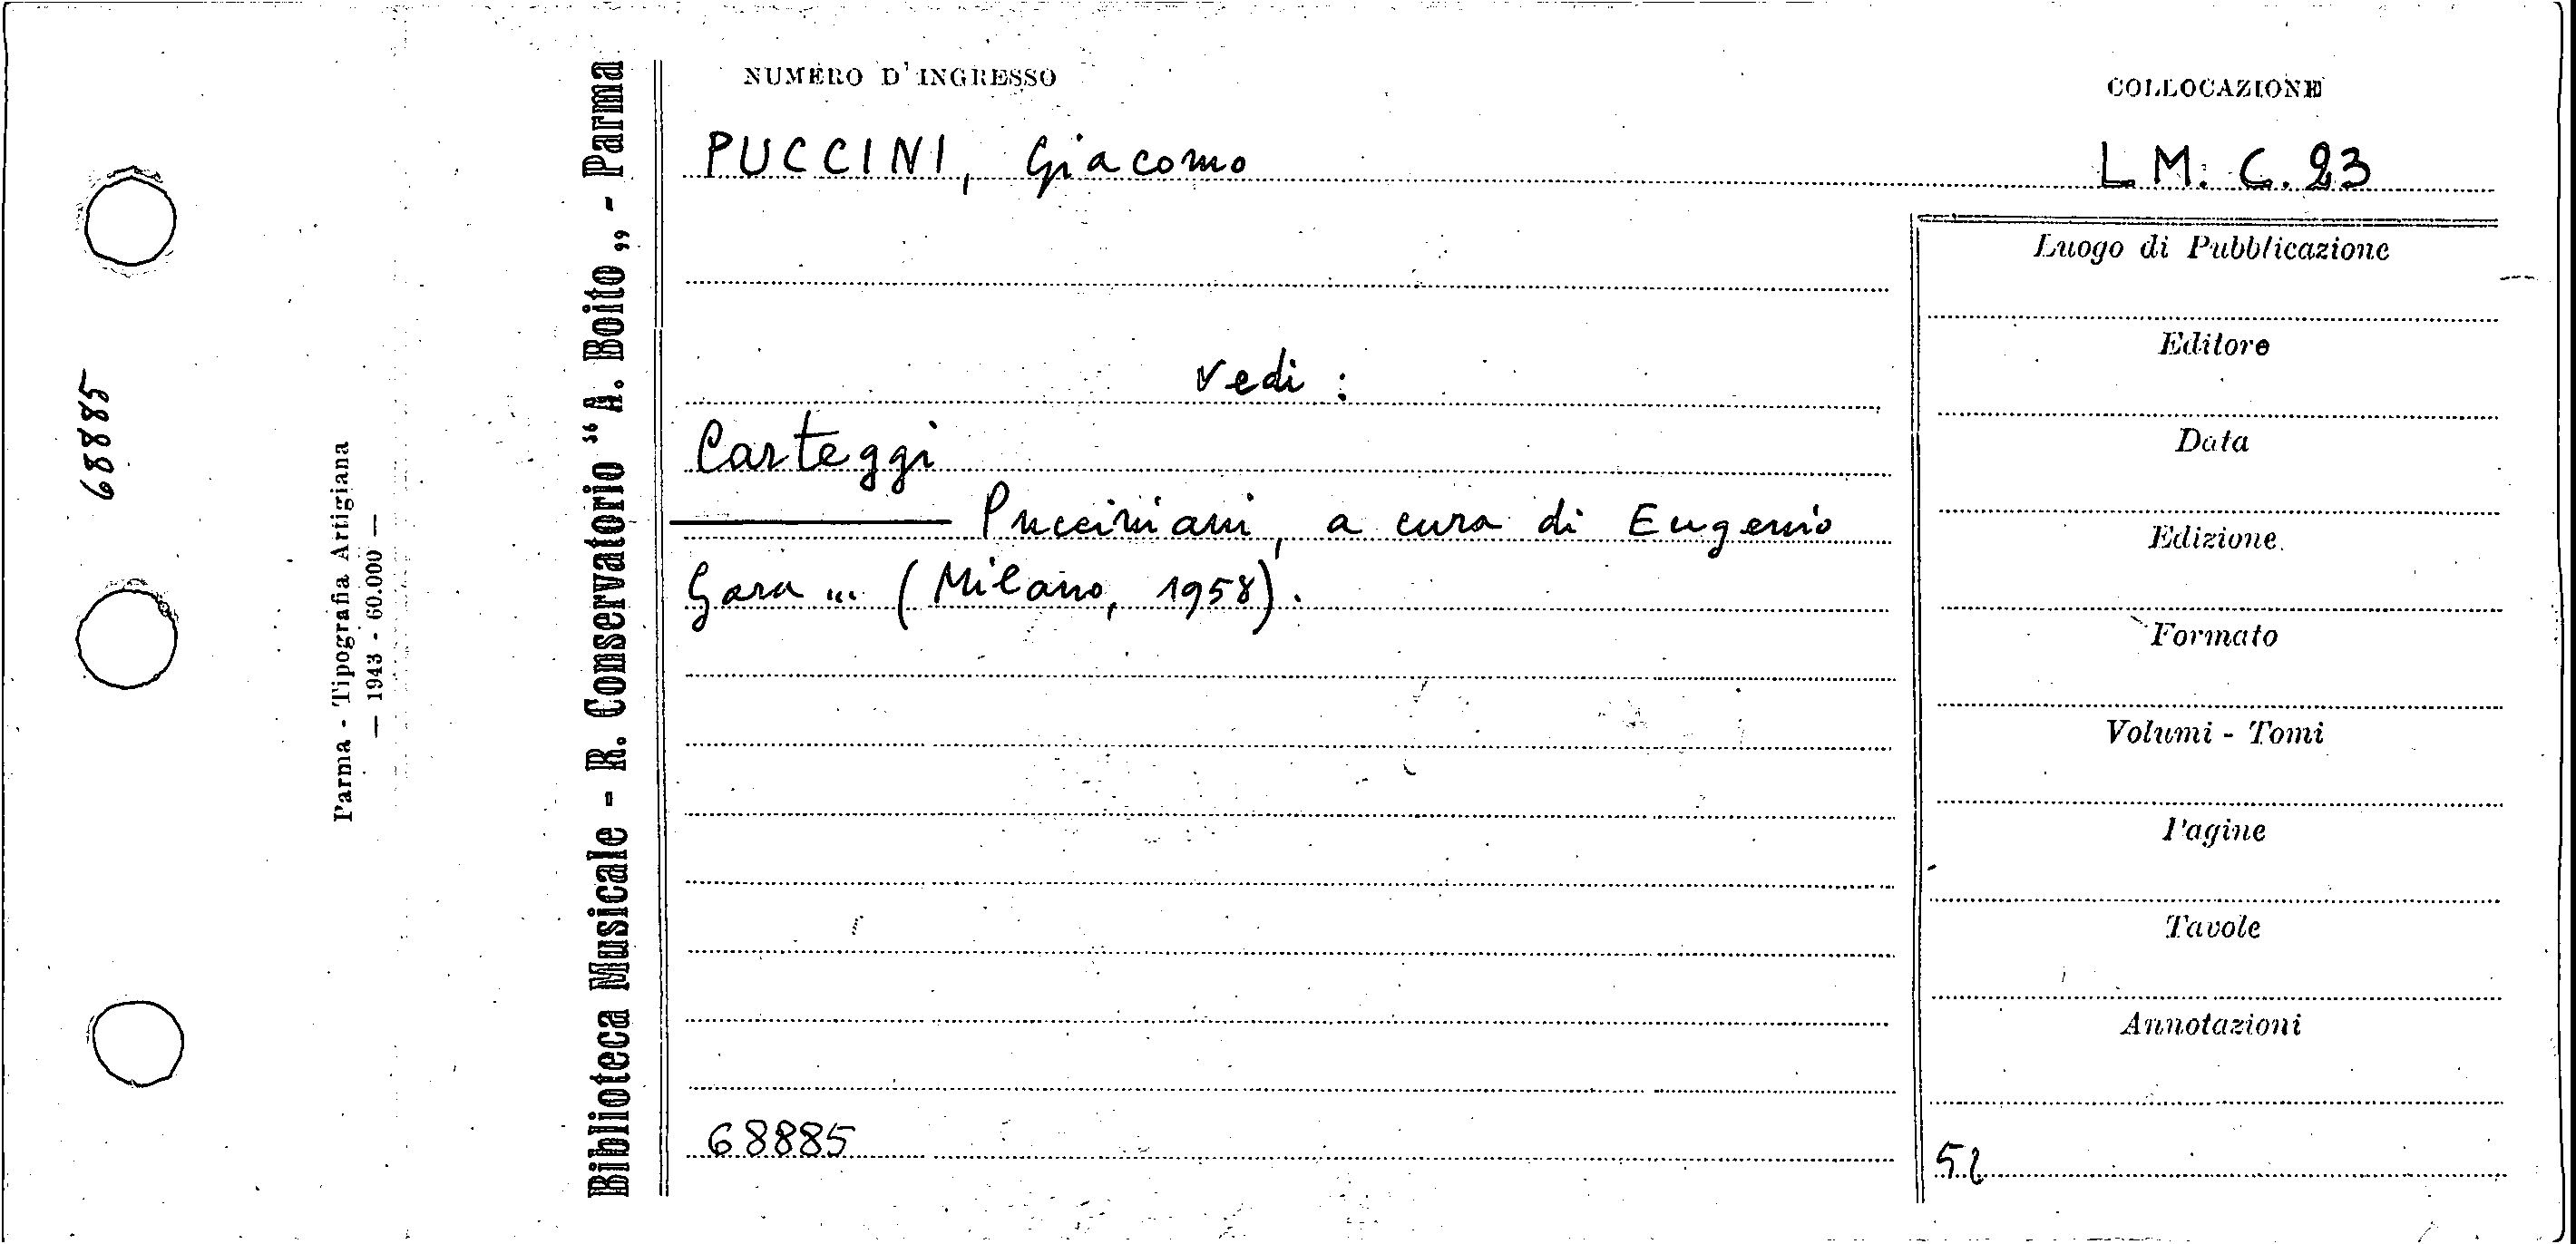 68885
Parma - Tipografia Artigiana
— 1943 - 60.000 —
Biblioteca Musicale - R. Conservatorio “A. Boito„ - Parma
NUMERO D'INGRESSO
COLLOCAZIONE
PUCCINI, Giacomo
L M. C. 23
Luogo di Pubblicazione
Editore
vedi :
Data
Carteggi
Pucciniani, a cura di Eugenio
Edizione
Gara ... (Milano, 1958).
Formato
Volumi - Tomi
Pagine
Tavole
Annotazioni
68885